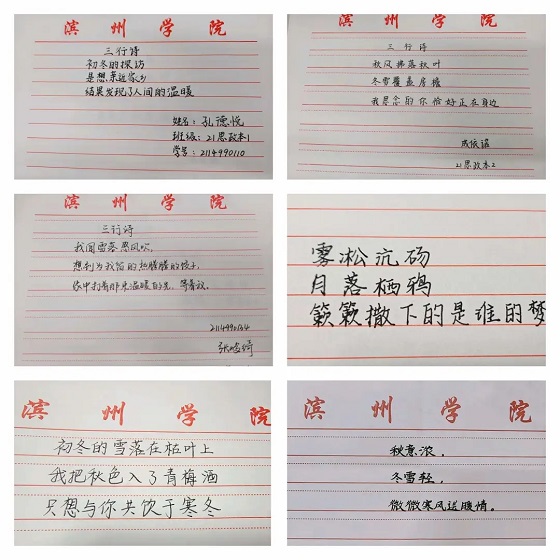 滨州学院
三行诗
初冬的探访
是想亲近家乡
结果发现了人间的温暖
姓名：孔德悦
班级：21思政本1
学号：2114990110
滨州学院
三行诗
秋风拂落秋叶
冬雪覆盖房檐
我思念的你恰好正在身边
成依诺
21思政本2
滨州学院
三行诗
我闻雪落思风吹，
想到为我留的热腾腾的饺子，
家中打着那束温暖的光，等着我。
雾凇沆砀
月落栖鸦
簌簌撒下的是谁的梦
滨州学院
初冬的雪落在枯叶上
我把秋色入了青梅酒
只想与你共饮于寒冬
滨州学院
秋意浓，
冬雪轻，
微微寒风送暖情。